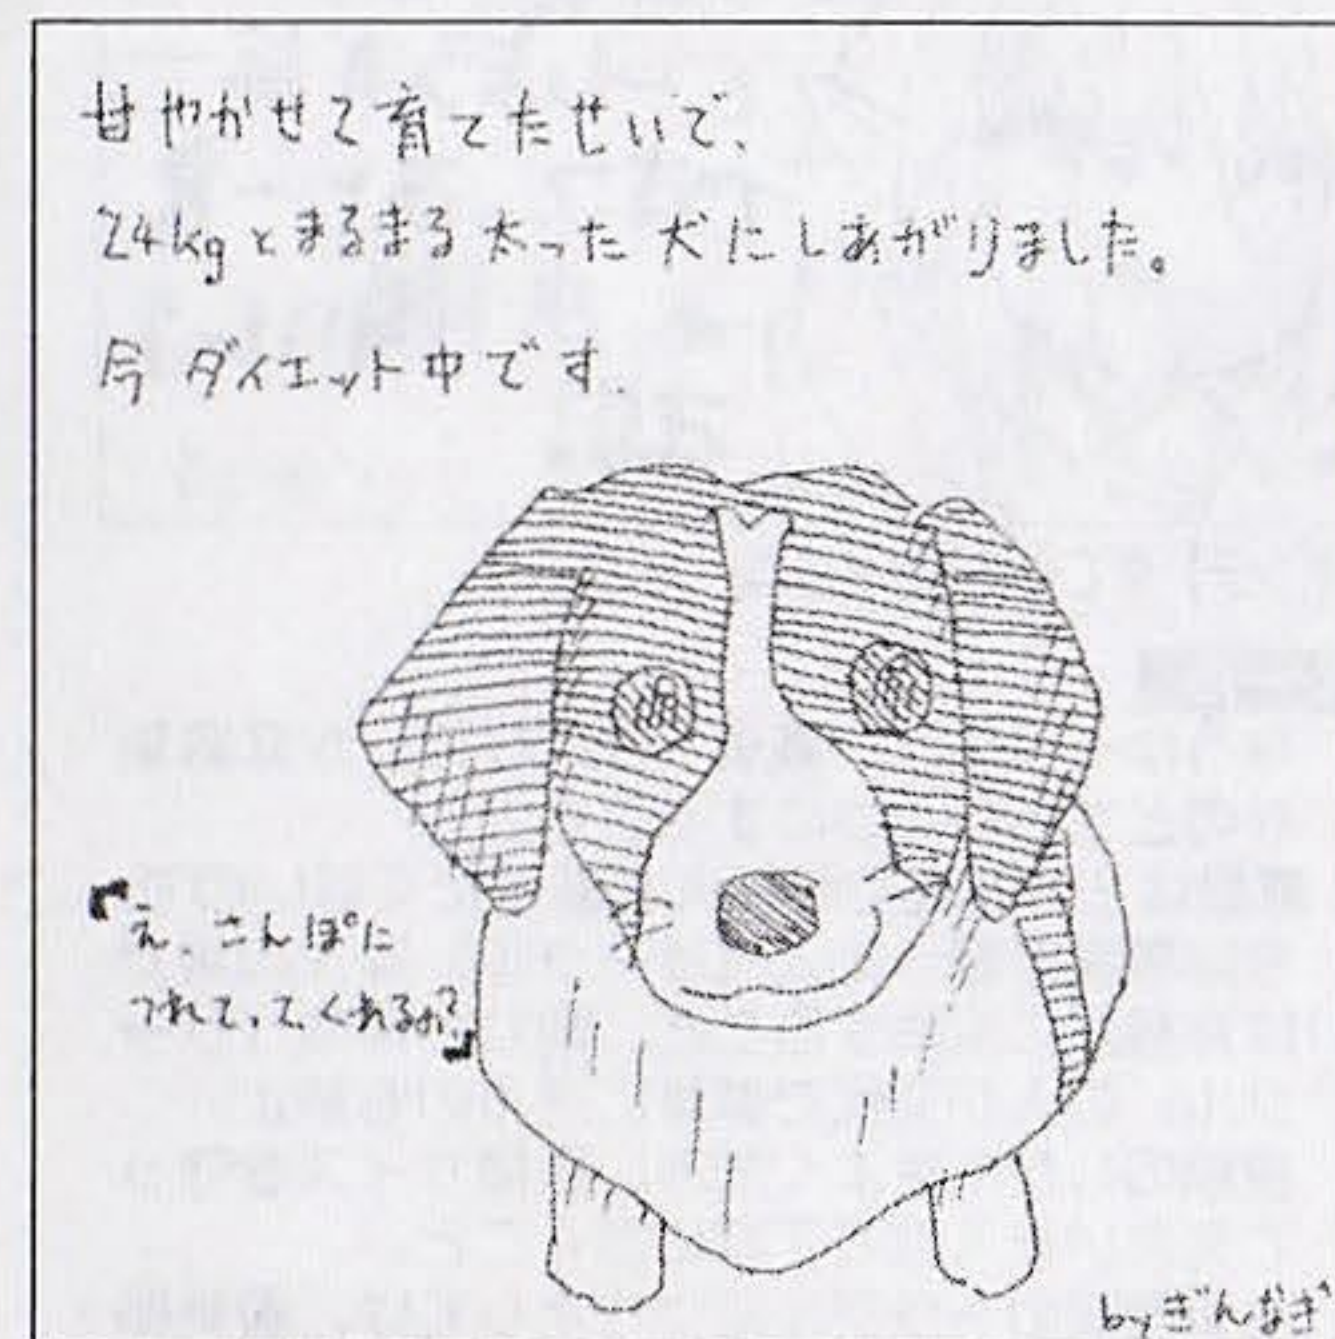 甘やかせて育てたせいで、
24kgとまるまる太った犬にしあがりました。
今ダイエット中です.
「え、さんぽに
つれてってくれるか?」
byぎんなぎ